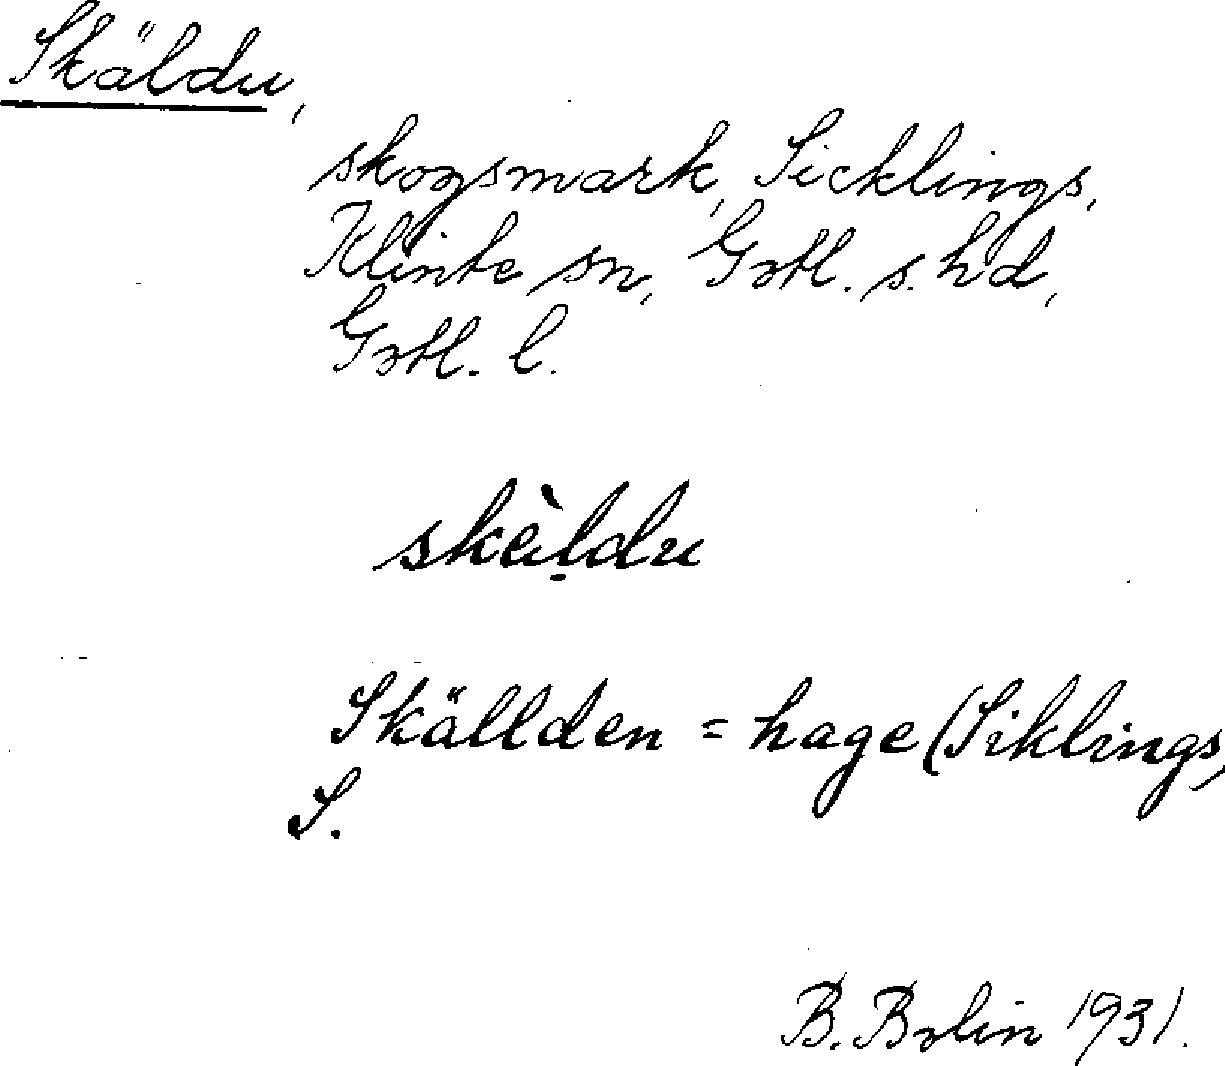 Skäldu,
skogsmark, Sicklings,
Klinte sn, Gotl. s. hd,
Gotl. l.
skèḷdu
Skällden = hage (Siklings,
S.
B. Bolin 1931.